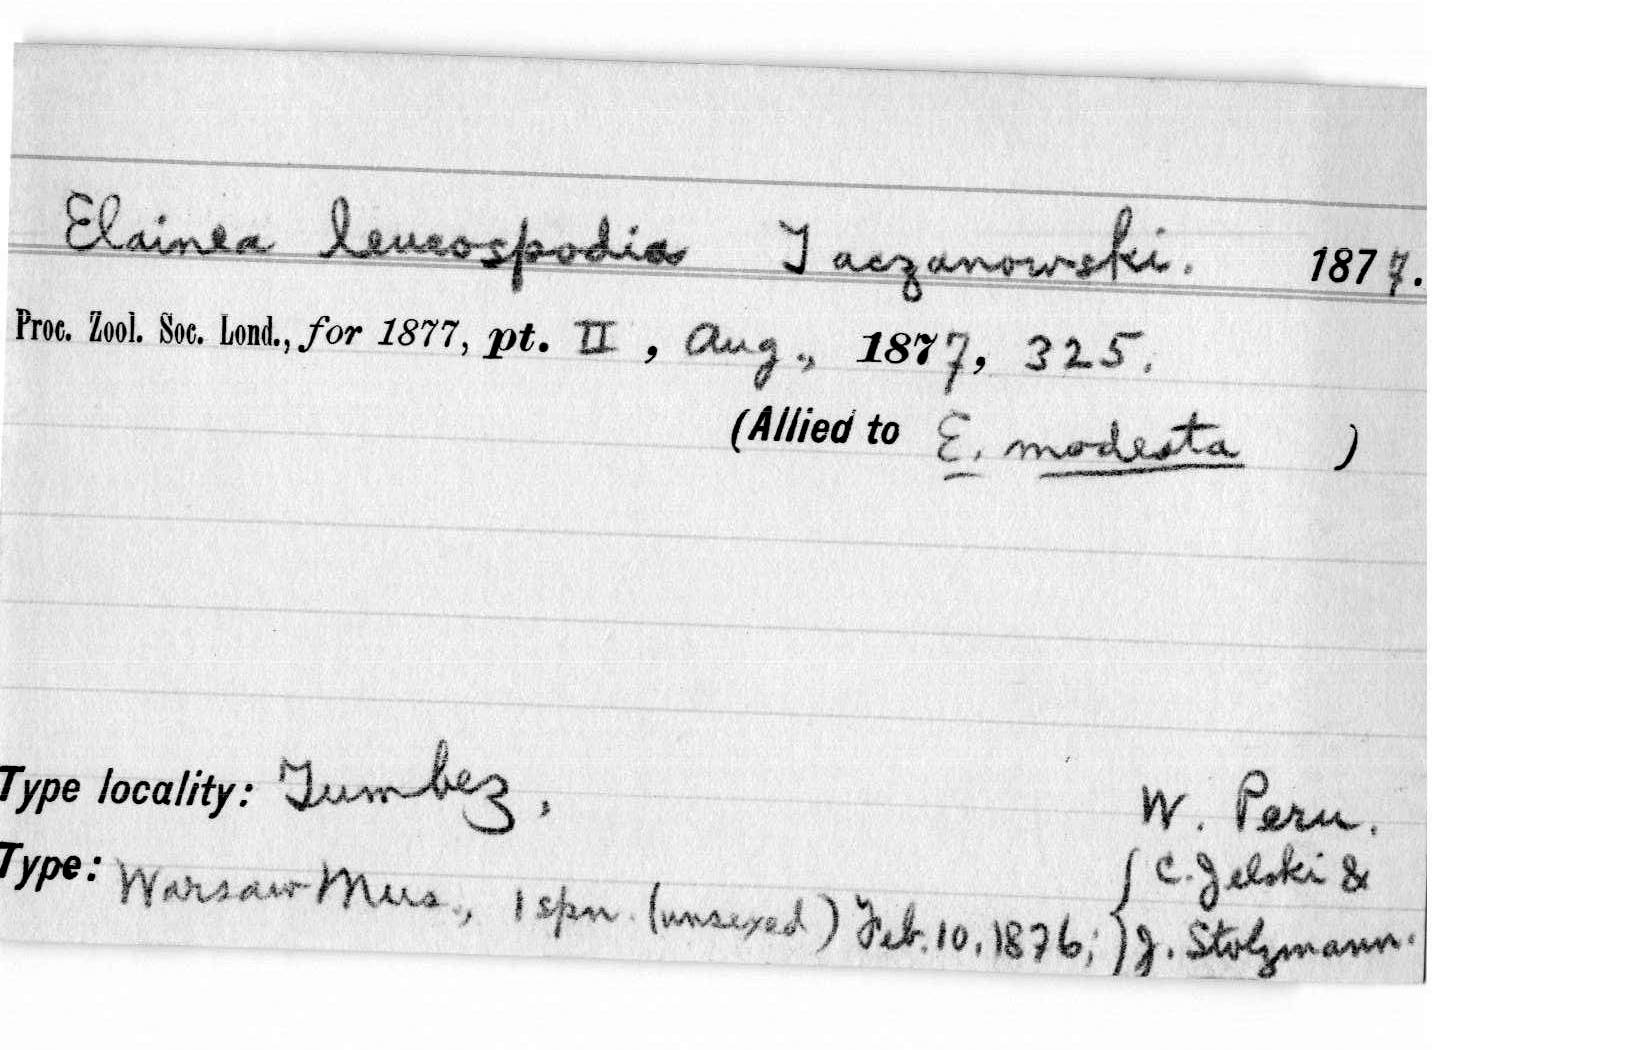 Elainea leucospodia Taczanowski. 1877.
Proc. Zool. Soc. Lond., for 1877, pt. II, Aug., 1877, 325.
(Allied to E. modesta )
Type locality: Tumbez, W. Peru.
Type: Warsaw Mus., 1 spn. (unsexed) Feb. 10, 1876; { C. Jelski &
J. Stolzmann.